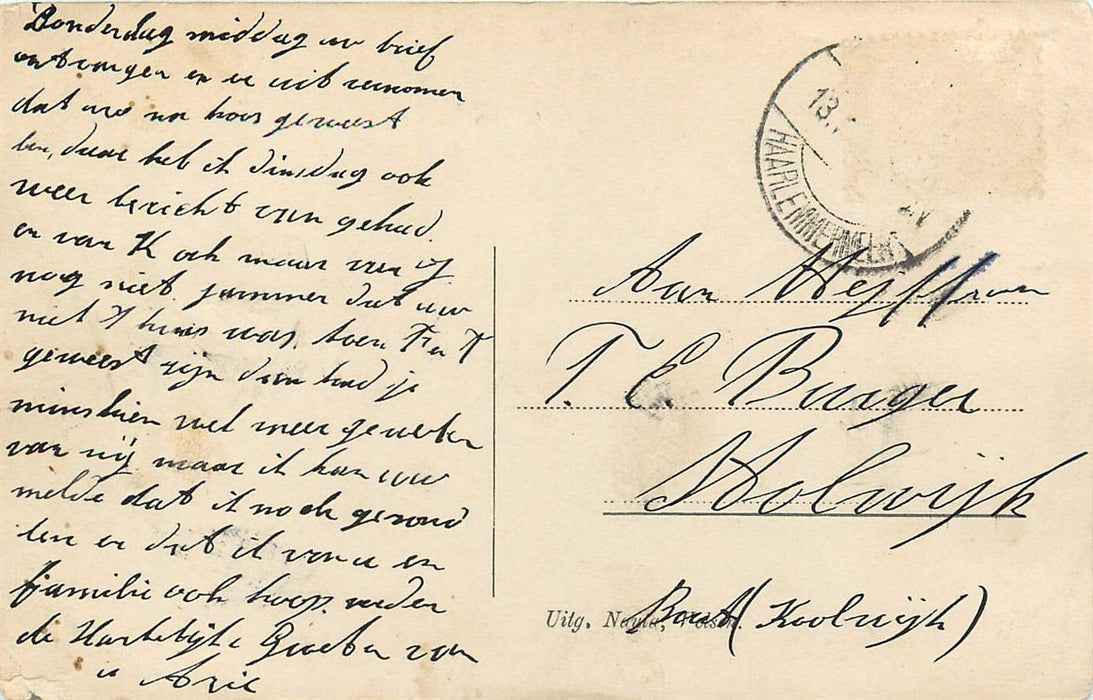 Donderdag middag uw brief
ontvangen en er uit vernomen
dat uw na hoos geweest
ben, daar heb ik dinsdag ook
weer bericht van gehad.
en van K ook maar van
nog niet jammer dat uw
niet thuis was toen F en T
geweest zijn dan had je
minschien wel meer geweten
van mij maar ik kan uw
melde dat ik noch gezond
ben en dat ik van u en
familie ook hoop. verder
de Hartelijke Groeten van
u Arie
13.
HAARLEMMERMEER
Aan
T. E. Burger
Stolwijk
Post (Koolwijk)
Uitg. Nauta, Velsen.